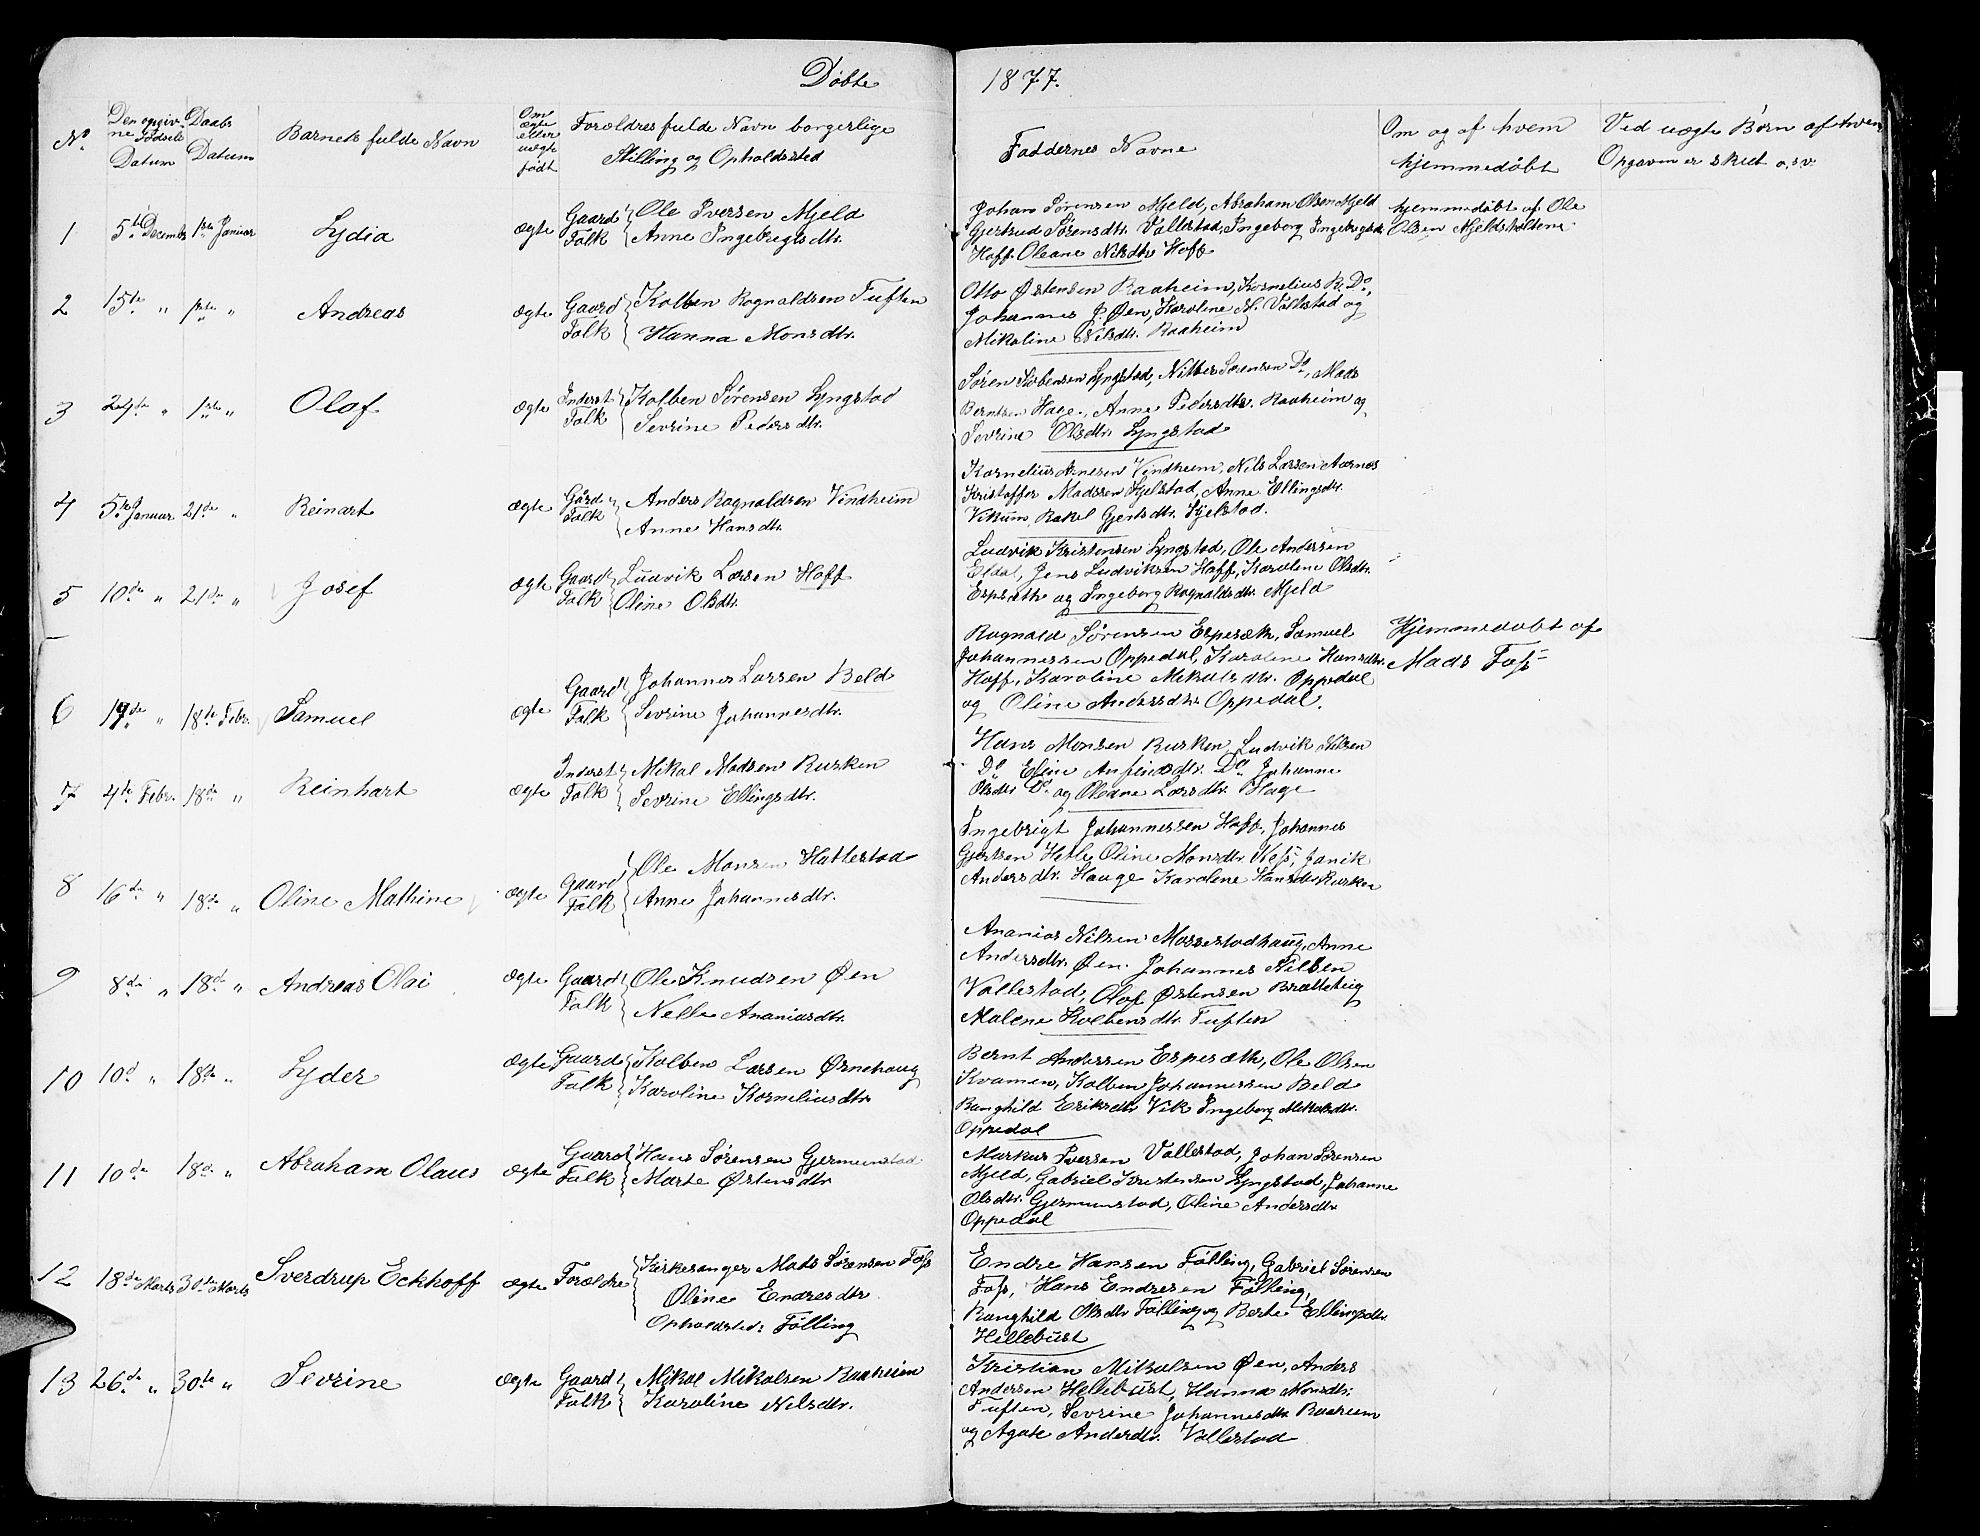 Døbte 1877.
No.
Den opgivne Fødsels Datum
Daabs Datum
Barnets fulde Navn
Om ægte eller uægte født
Forældres fulde Navn borgerlige
Stilling og Opholdssted
Faddernes Navne
Om og af hvem
hjemmedøbt
Ved uægte Börn af hvem
Opgaven er skeet o.s.v.
1 5te Decembr 1ste Januar Lydia ægte Gaard Folk Ole Iversen Mjeld
Anne Ingebrigtsdtr.
Johan Sørensen Mjeld, Abraham Olsen Mjeld
Gjertrud Sørensdtr. Vallestad, Ingeborg Ingebrigtsdt.
Hoff. Oleane Nilsdtr Hoff
hjemmedøbt af Ole
Olsen Mjeldsholtene
2 15de " 1ste " Andreas ægte Gaard Folk Kolben Rognaldsen Tuften
Hanna Monsdtr.
Otto Østensen Raaheim, Kornelius R. Do,
Johannes J. Øen, Karoline N. Vallestad og
Mikaline Nilsdtr. Raaheim
3 24de " 1ste " Olaf ægte Inderst Folk Kolben Sørensen Lyngstad
Sevrine Pedersdtr.
Søren Lyngstad, Sørensen Do, Mads
Berntsen Hage, Anne Pedersdtr. Raaheim og
Sevrine Olsdtr. Lyngstad
4 5te Januar 21de " Reinart ægte Gård Folk Anders Ragnaldsen Vindheim
Anne Hansdtr.
Kornelius Vindheim, Nils Larsen Aarnes
Kristoffer Madssen Hjelstad, Anne Ellingsdtr.
Vikum, Rakel Gjertsdtr. Hjelstad.
5 10de " 21de " Josef ægte Gaard Folk Ludvik Larsen Hoff
Oline Olsdtr.
Ludvik Kristensen Lyngstad, Ole Andersen
Eldal, Jens Ludviksen Hoff, Karoline Olsdtr.
Espesæth og Ingeborg Ragnaldsdtr. Mjeld
6 19de " 18de Febr. Samuel ægte Gaard Folk Johannes Larsen Beld
Sevrine Johannesdtr.
Ragnald Sørensen Espesæth, Samuel
Johannessen Oppedal, Karolene Hansdtr.
Hoff, Karoline Mikalsdtr. Oppedal
og Oline Andersdtr. Oppedal.
Hjemmedøbt af
Mads Foss
7 4de Febr. 18de " Reinhart ægte Inderst Folk Mikal Madsen Rusken
Sevrine Ellingsdtr.
Hans Monsen Rusken, Ludvik Nilsen
Do Eline Anfindsdtr. Do, Johanne
Olsdtr. Do. og Oleane Larsdtr. Hage
8 16de " 18de " Oline Mathine ægte Gaard Folk Ole Monsen Hattestad
Anne Johannesdtr.
Ingebrigt Johannessen Hoff, Johannes
Gjertsen Hetle, Oline Monsdtr. Janik
Andersdtr. Hauge Karolene Hansdtr. Rusken
9 8de " 18de " Andreas Olai ægte Gaard Folk Ole Knudsen Øen
Nelle Ananiasdtr.
Ananias Nilsen Massestadhaug, Anne
Andersdtr. Øen. Johannes Nilsen
Vallestad, Olaf Østensen Bratteteig
Malene Kolbensdtr. Tuften
10 10de " 18de " Lyder ægte Gaard Folk Kolben Larsen Ørnehaug
Karoline Korneliusdtr
Bernt Anderssen Espesæth, Ole Olsen
Kvamen, Kolben Johannessen Beld
Ranghild Eriksdtr Vik Ingeborg Mikalsdtr.
Oppedal
11 10de 18de " Abraham Olaus ægte Gaard Folk Hans Sørensen Gjermunstad
Marte Østensdtr
Markus Iversen Vallestad, Johan Sørensen
Mjeld, Gabriel Kristensen Lyngstad, Johanne
Olsdtr. Gjermunstad, Oline Andersdtr
Oppedal
12 18de Marts 30te Marts Sverdrup Eckhoff ægte Forældre Kirkesanger Mads Sørensen Foss
Oline Endresdtr
Opholdsted: Fölling
Endre Hansen Fölling, Gabriel Sørensen
Foss, Hans Endresen Fölling,
Ranghild Olsdtr Fölling og Berte Ellingsdtr.
Hillebust
13 26de " 30te " Sevrine ægte Gaard Folk Mikal Mikalsen Raaheim
Karoline Nilsdtr.
Kristian Mikalsen Øen, Anders
Andersen Hellebust, Hanna Monsdtr.
Tuften, Sevrine Johannesdtr Raaheim
og Agate Andersdtr. Vallestad